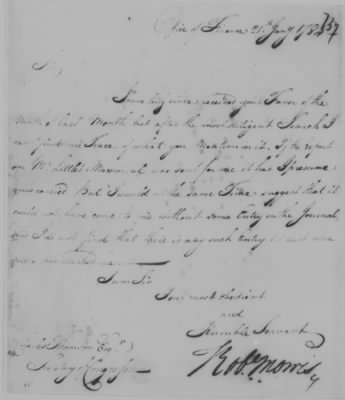 Office of Finance 21st Jany 1782
137
Sir
Some time since I received your Favor of the
of last Month but after the most diligent Search I
can find no Trace of what you Mention in it. If the report
on Mr Memorial was sent to me it has I presume
But I would at the same Time suggest that it
could not have come to me without some Entry on the Journal,
and I do not find that there is any such Entry
I am Sir
Your most obedient
and
Humble Servant
Robt Morris
Charles Thomson Esqr
Secretary of Congress